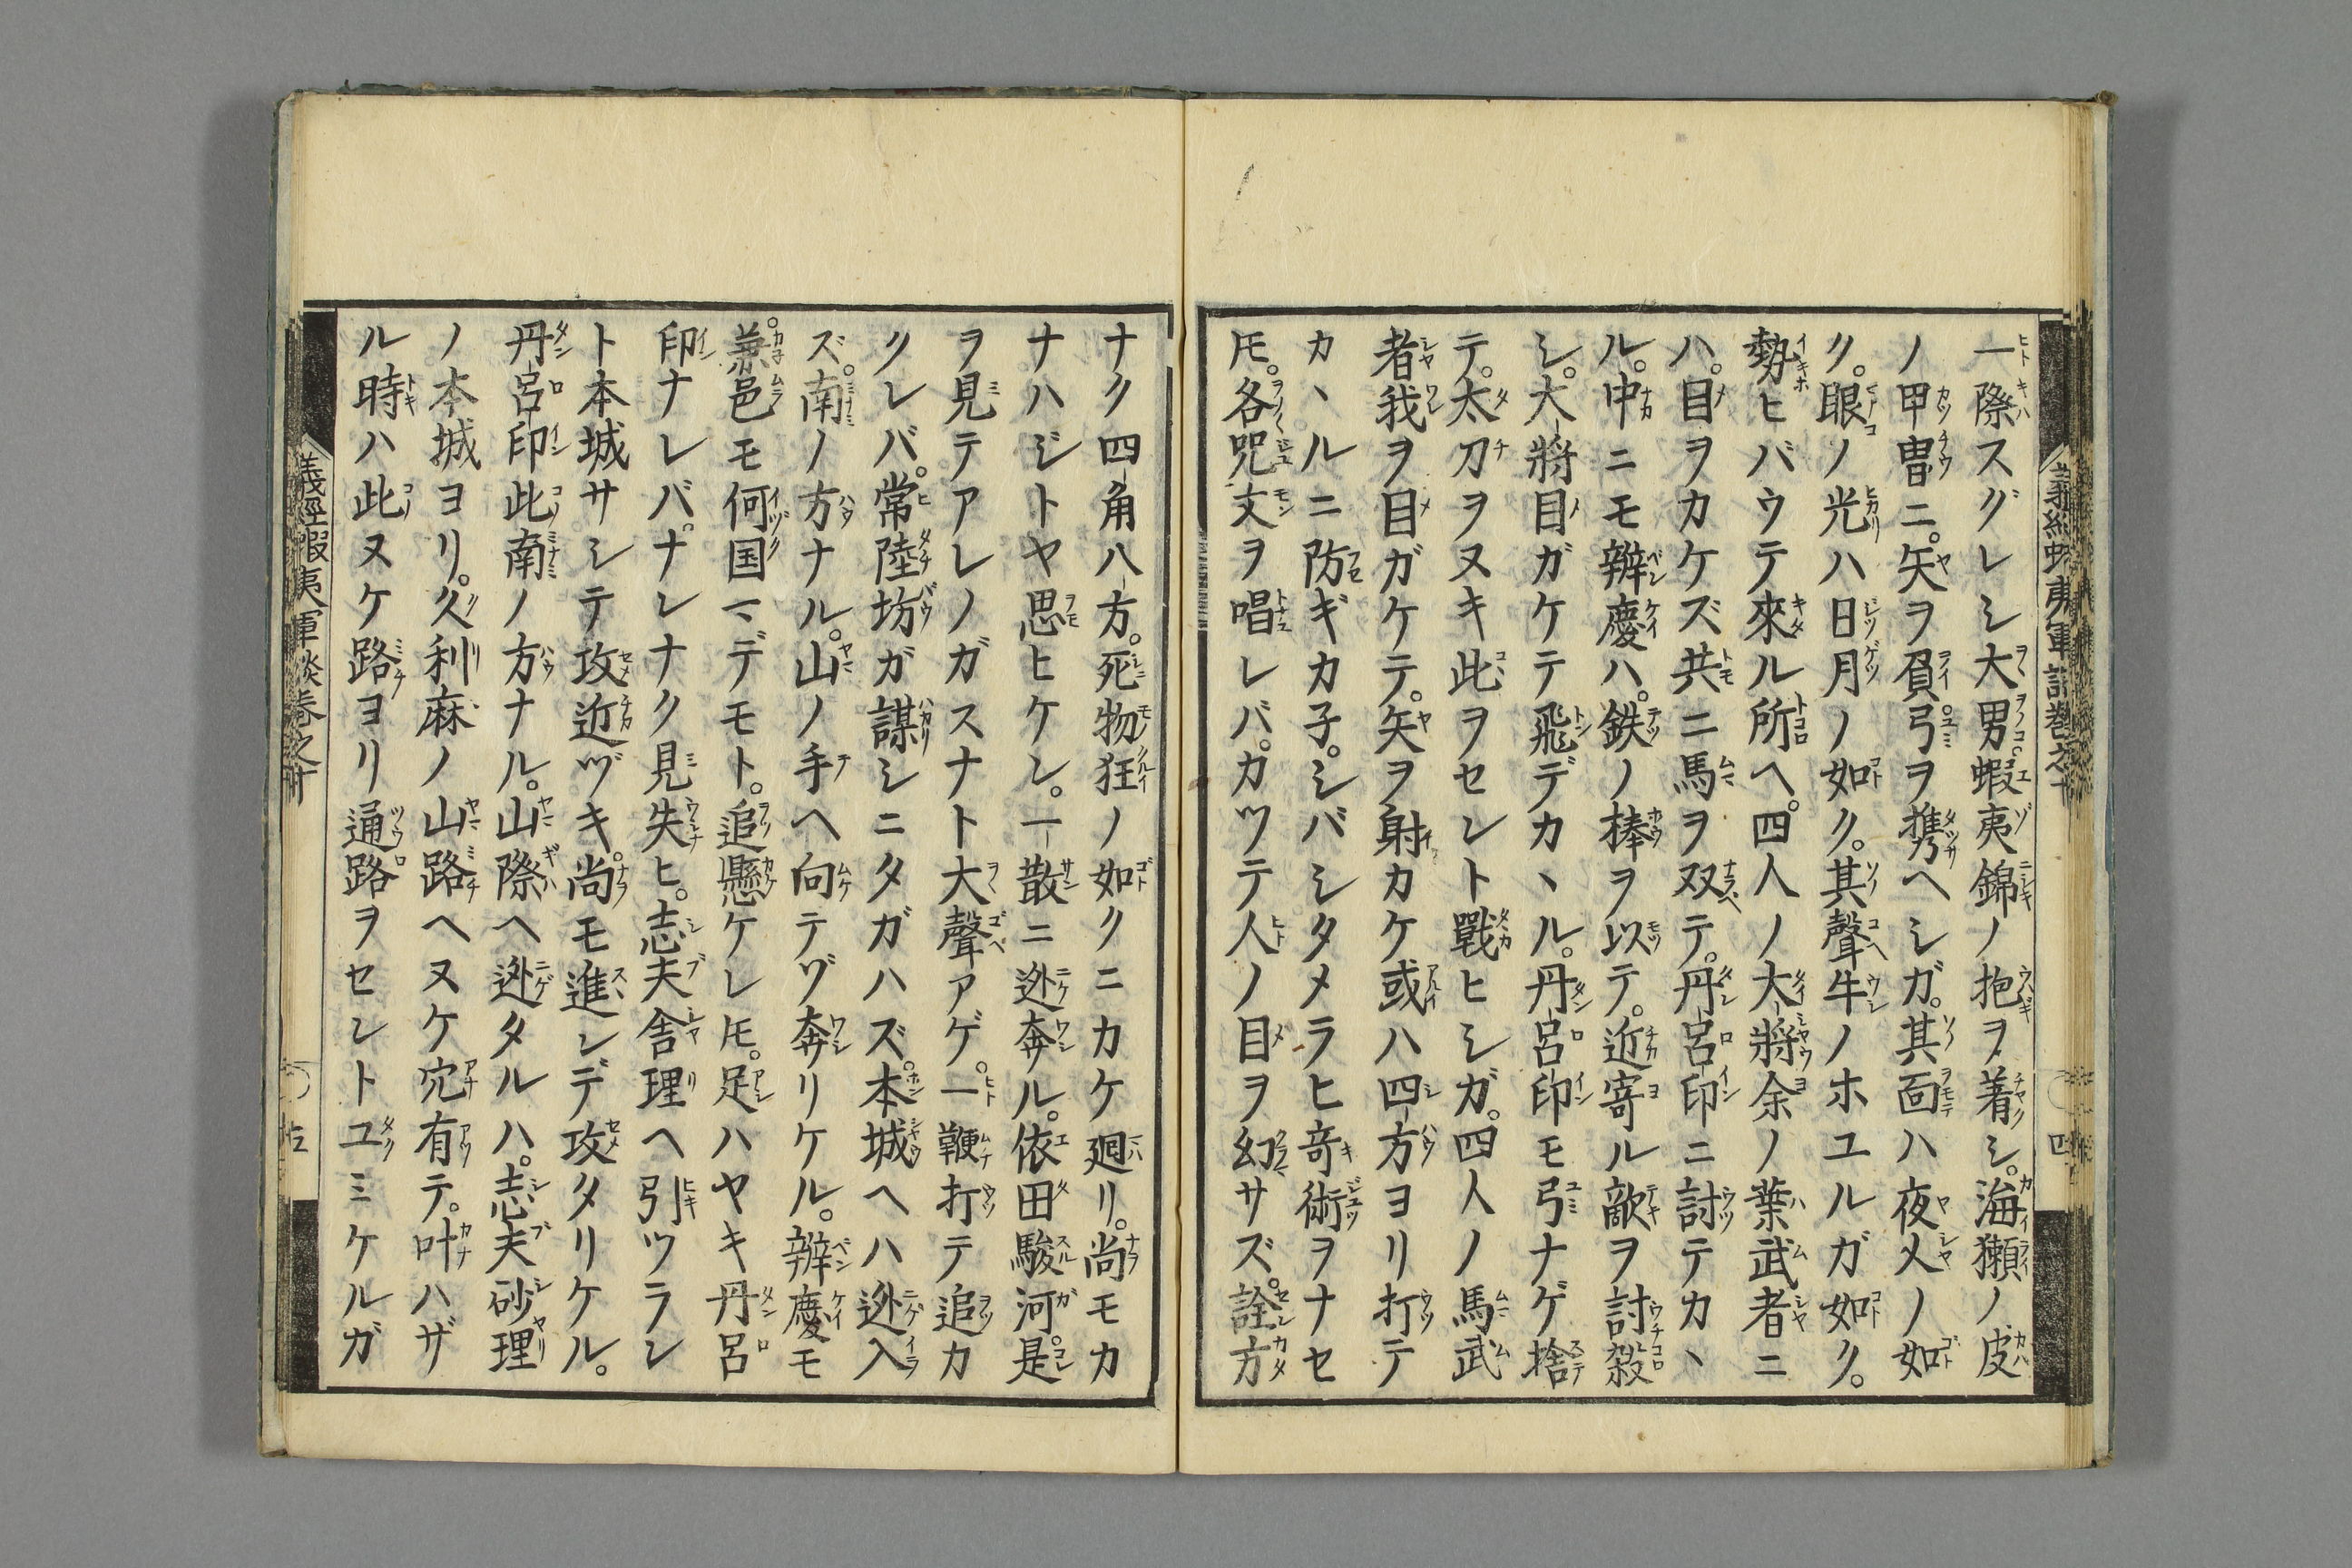 一際スグレシ大男。蝦夷錦ノ袍ヲ着シ。海獺ノ皮
ノ甲冑ニ。矢ヲ負弓ヲ携ヘシガ。其面ハ夜叉ノ如
ク。眼ノ光ハ日月ノ如ク。其聲牛ノホユルガ如ク。
勢ヒバウテ來ル所ヘ。四人ノ大将余ノ葉武者ニ
ハ。目ヲカケズ共ニ馬ヲ双テ。丹呂印ニ討テカヽ
ル。中ニモ辨慶ハ。鉄ノ棒ヲ以テ。近寄ル敵ヲ討殺
シ。大将目ガケテ飛デカヽル。丹呂印モ弓ナゲ捨
テ。太刀ヲヌキ此ヲセント戰ヒシガ。四人ノ馬武
者我ヲ目ガケテ。矢ヲ射カケ或ハ四方ヨリ打テ
カヽルニ防ギカ子。シバシタメラヒ竒術ヲナセ
𪜈。各咒文ヲ唱レバ。カツテ人ノ目ヲ幻サズ。詮方
ナク四角八方。死物狂ノ如クニカケ廻リ。尚モカ
ナハジトヤ思ヒケン。一散ニ迯奔ル。依田駿河是
ヲ見テアレノガスナト大聲アゲ。一鞭打テ追カ
クレバ。常陸坊ガ謀シニタガハズ。本城ヘハ迯入
ズ。南ノ方ナル。山ノ手ヘ向テゾ奔リケル。辨慶モ
兼邑モ何国マデモト。追懸ケレ𪜈。足ハヤキ丹呂
印ナレバ。ナンナク見失ヒ。志夫舎理ヘ引ツラン
ト本城サシテ攻近ヅキ。尚モ進ンデ攻タリケル。
丹呂印此南ノ方ナル。山際ヘ迯タルハ。志夫砂理
ノ本城ヨリ。久利麻ノ山路ヘヌケ穴有テ。叶ハザ
ル時ハ此ヌケ路ヨリ通路ヲセントユミケルガ
義經蝦夷軍談巻之十